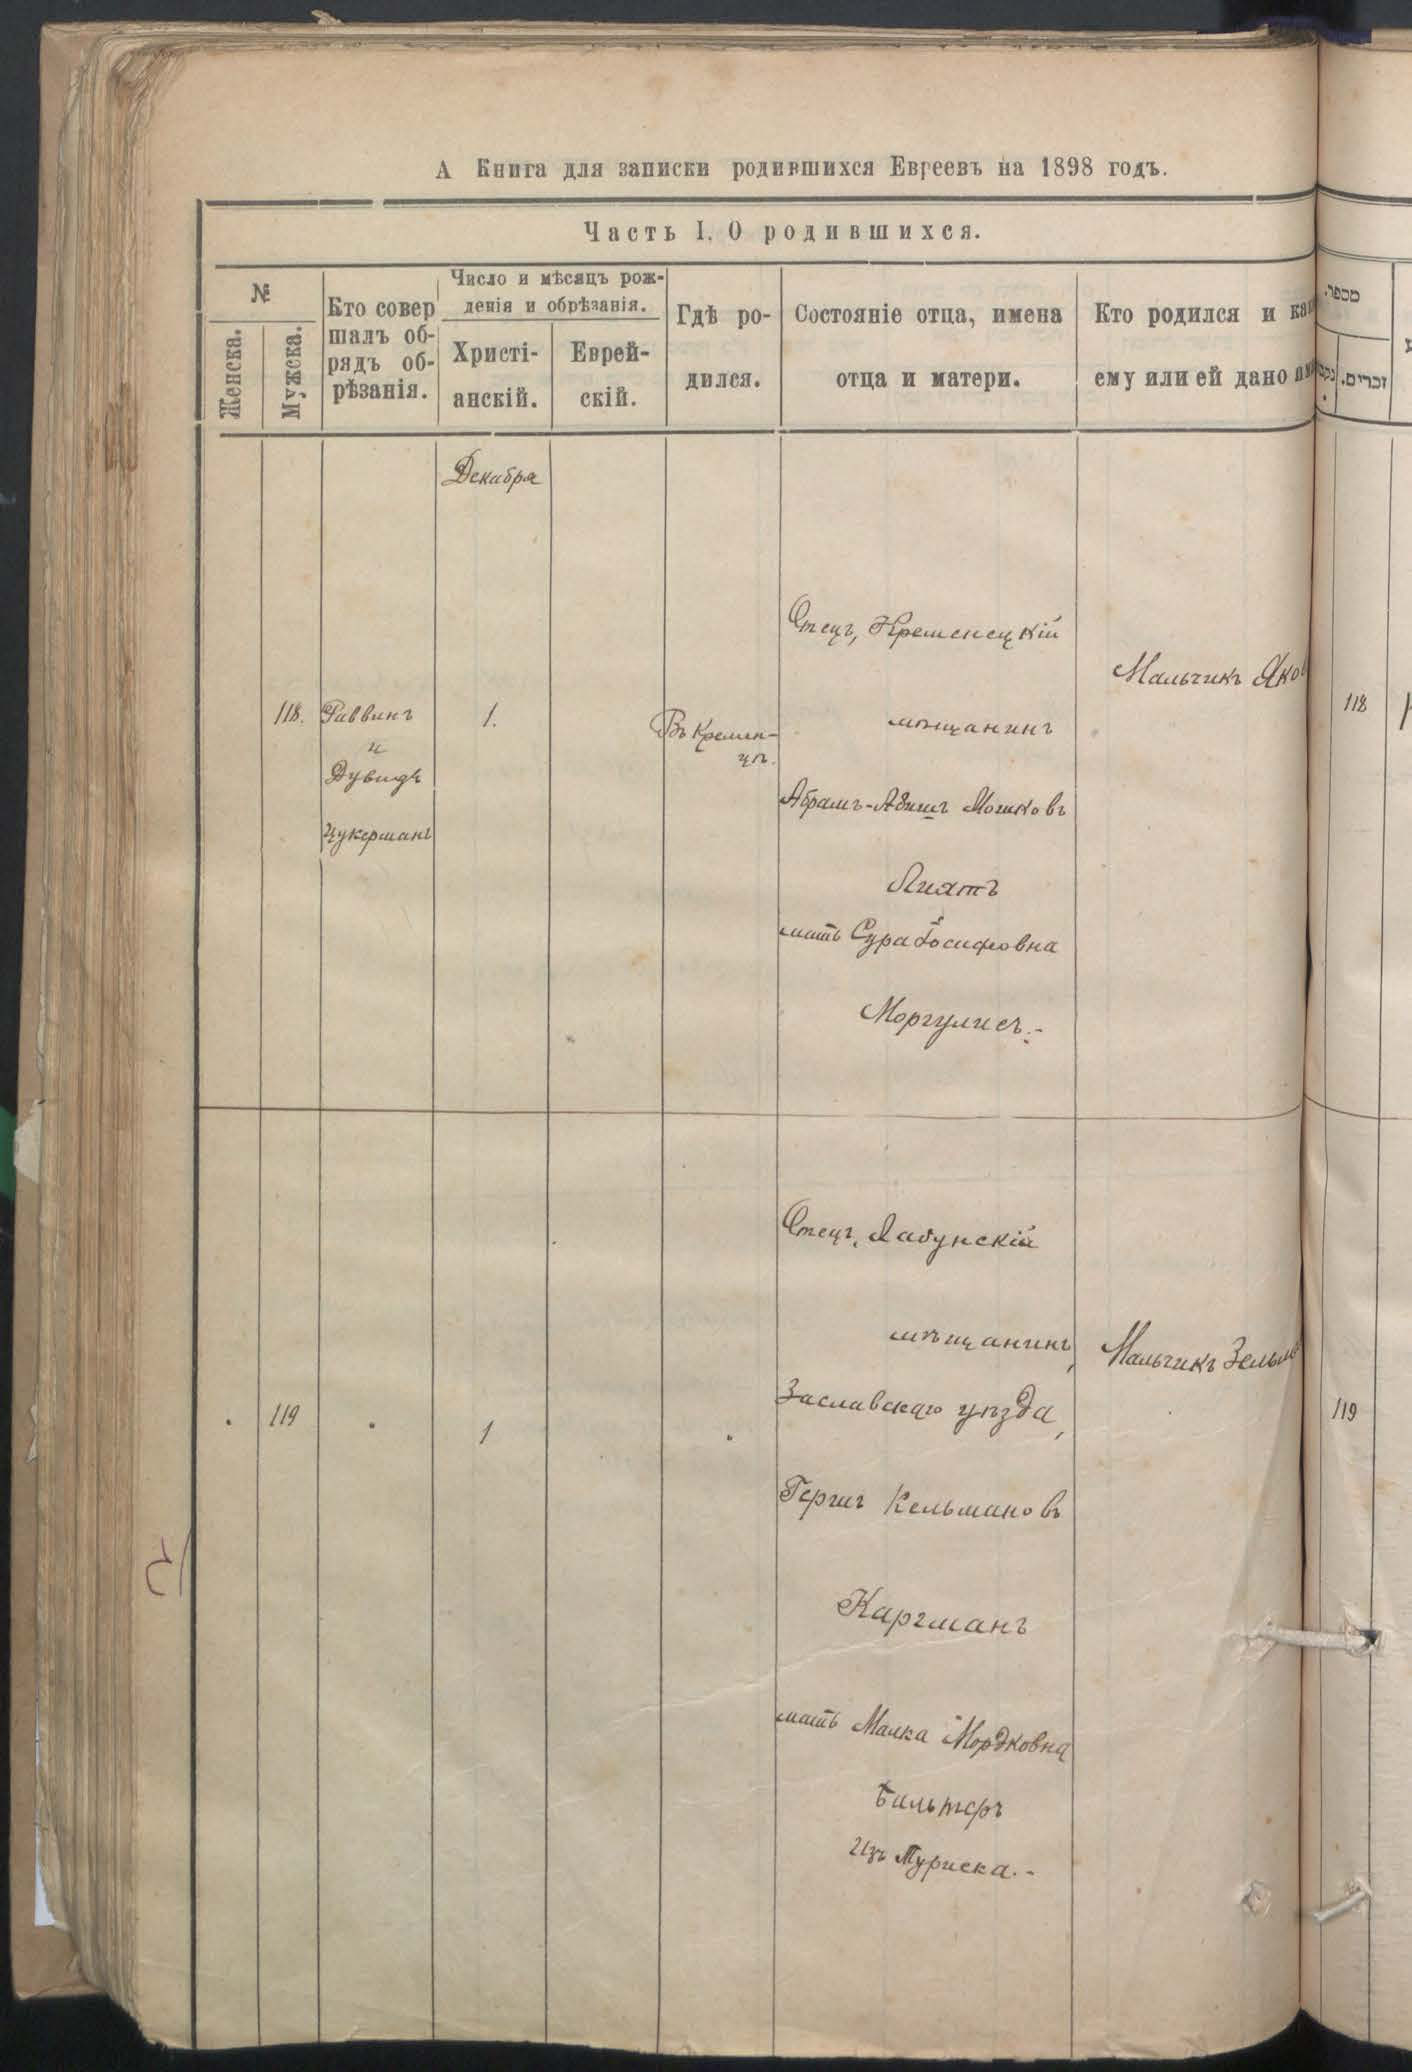 А Книга для записки родившихся Евреевъ на 1898 годъ.
Часть I. О родившихся.
№
Женска.
Мужска.
Кто совер
шалъ об-
рядъ об-
рѣзанія.
Число и мѣсяцъ рож-
денія и обрѣзанія.
Христі-
анскій.
Еврей-
скій.
Гдѣ ро-
дился.
Состояніе отца, имена
отца и матери.
Кто родился и как
ему или ей дано им
מספר.
זכרים.
Декабря
118.
Раввинъ
и
Дувидъ
Цукерманъ
1.
Въ Кремен-
цѣ.
Отецъ, Кременецкій
мѣщанинъ
Абрамъ-Абишъ Мошковъ
Лиятъ
мать Сура Іосифовна
Моргулисъ.-
Мальчикъ Яков
118
119
1
Отецъ, Лабунскій
мѣщанинъ,
Заславскаго уѣзда,
Гершъ Кельмановъ
Каргманъ
мать Малка Мордковна
Бильтеръ
Изъ Туриска.-
Мальчикъ Зельм
119